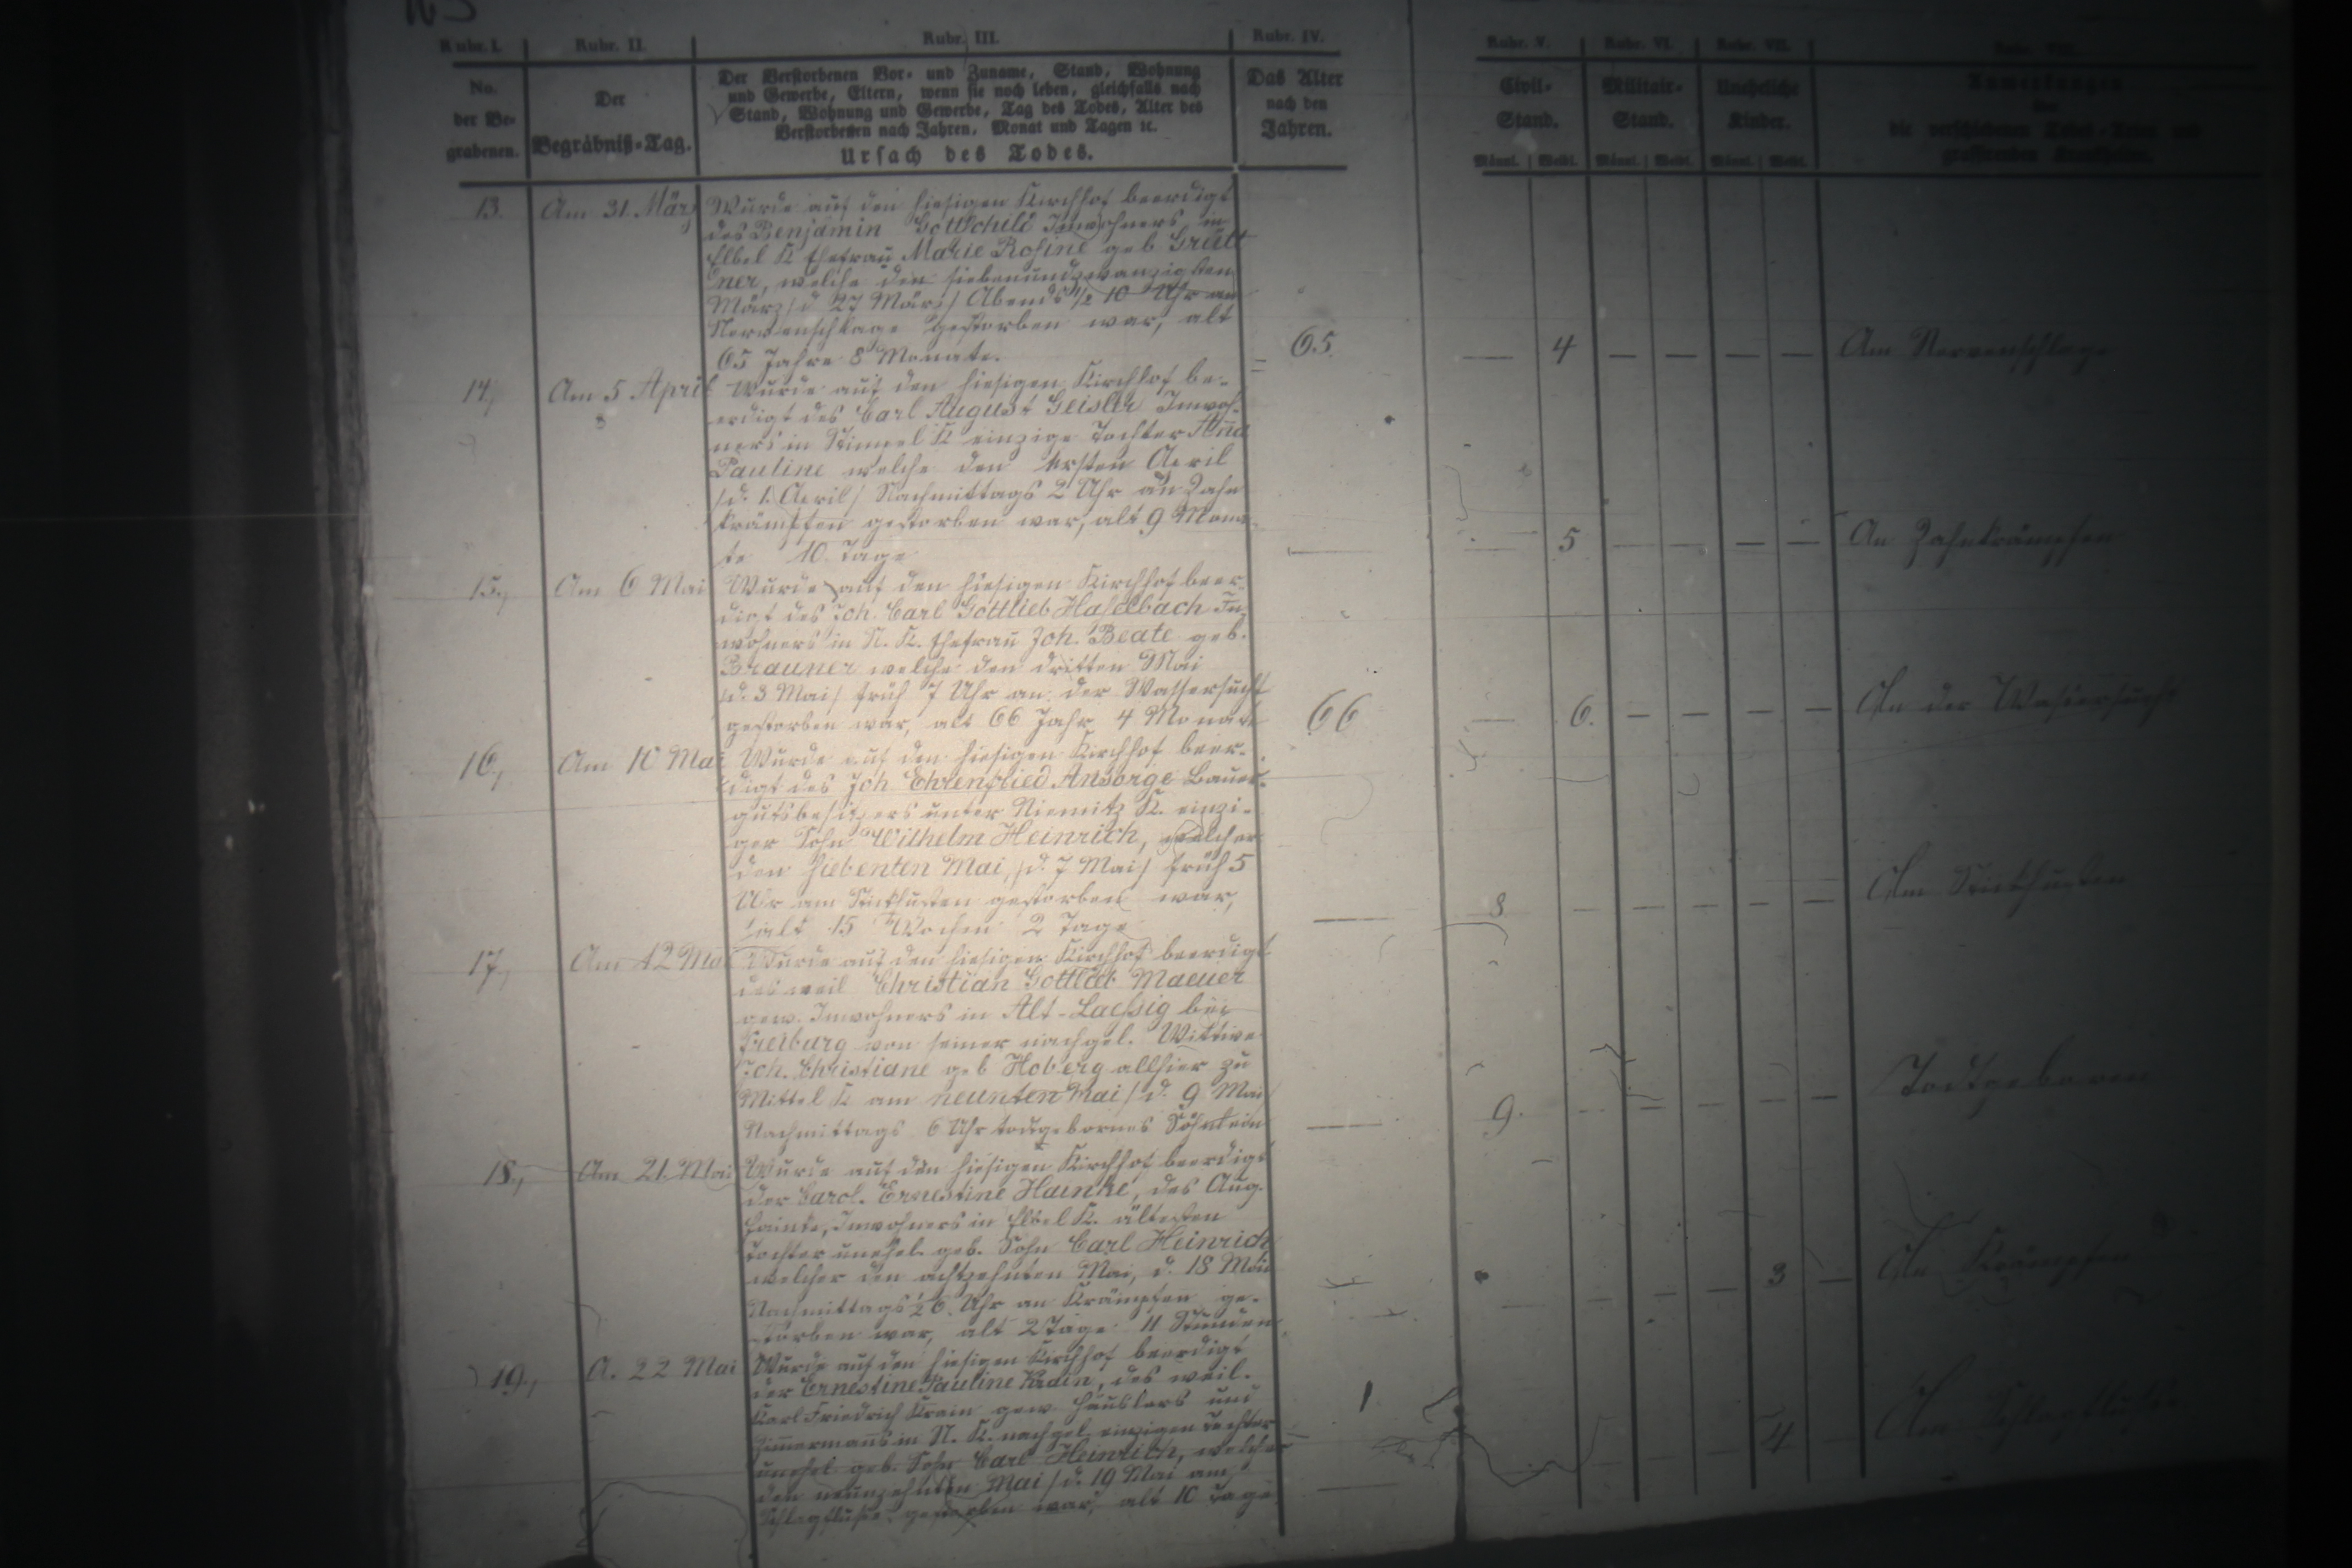 Rubr. I. Rubr. II. Rubr. III. Rubr. IV. Rubr. V. Rubr. VI. Rubr. VII.
No. der Be-grabenen.
Der Begräbniß-Tag.
Der Verstorbenen Vor- und Zuname, Stand, Wohnung
und Gewerbe, Eltern, wenn sie noch leben, gleichfalls nach
Stand, Wohnung und Gewerbe, Tag des Todes, Alter des
Verstorbenen nach Jahren, Monat und Tagen ꝛc.
Ursach des Todes.
Das Alter nach den Jahren.
Civil-Stand.
Militair-Stand.
Uneheliche Kinder.
Männl. Weibl. Männl. Weibl. Männl. Weibl.
die verschiedenen Todes-Arten und
grassirenden Krankheiten.
13. Am 31. März Wurde auf den hiesigen Kirchhof beerdigt
des Benjamin Gottschild Inwohners in
Elbel K Ehefrau Marie Rosine geb Grütt
ner, welche den siebenundzwanzigsten
März /d 27 März/ Abends 1/2 10 Uhr am
Nervenschlage gestorben war, alt
65 Jahre 8 Monate. 65. — 4 — — — — Am Nervenschlage
14, Am 5 April Wurde auf den hiesigen Kirchhof be-
erdigt des Carl August Geisler Inwoh-
ners in K einzige Tochter Aña
Pauline welche den ersten April
/d. 1. April/ Nachmittags 2 Uhr an Zahn
krämpfen gestorben war, alt 9 Mona-
te 10 Tage — — 5 — — — — An Zahnkrämpfen
15., Am 6 Mai Wurde auf den hiesigen Kirchhof beer-
digt des Joh. Carl Gottlieb Haselbach In-
wohners in N. K. Ehefrau Joh. Beate geb.
Brauner welche den dritten Mai
/d. 3 Mai/ früh 7 Uhr an der Wassersucht
gestorben war, alt 66 Jahr 4 Monat 66 — 6. — — — — An der Wassersucht
16., Am 10 Mai Wurde auf den hiesigen Kirchhof beer-
digt des Joh Ehrenfried Ansorge Bauer-
gutsbesitzers unter K. einzi-
ger Sohn Wilhelm Heinrich, welcher
den siebenten Mai, /d. 7 Mai/ früh 5
Uhr am Stickhusten gestorben war,
alt 15 Wochen 2 Tage — 8 — — — — — Am Stickhusten
17., Am 12 Mai Wurde auf den hiesigen Kirchhof beerdigt
des weil Christian Gottlieb
gew. Inwohners in Alt-
Freiburg von seiner nachgel. Wittwe
Joh. Christiane geb Hoberg allhier zu
Mittel K am neunten Mai /d. 9 Mai/
Nachmittags 6 Uhr todtgebornes Söhnlein — 9. — — — — — Todtgeboren
18., Am 21. Mai Wurde auf den hiesigen Kirchhof beerdigt
der Carol. Ernestine Hainke, des Aug.
Hainke, Inwohners in Elbel K. ältesten
Tochter unehel. geb. Sohn Carl Heinrich
welcher den achtzehnten Mai, d. 18 Mai
Nachmittags 1/2 6 Uhr an Krämpfen ge-
storben war, alt 2 Tage 11 Stunden — — — — 3 — An Krämpfen
19., A. 22 Mai Wurde auf den hiesigen Kirchhof beerdigt
der Ernestine Pauline Krain, des weil.
Karl Friedrich Krain gew. Häuslers und
Zimermañs in N. K. nachgel. einzigen Tochter
unehel geb. Sohn Carl Heinrich, welcher
den neunzehnten Mai /d. 19 Mai am
Schlagflusse gestorben war, alt 10 Tage — — — — 4 — Am Schlagflusse